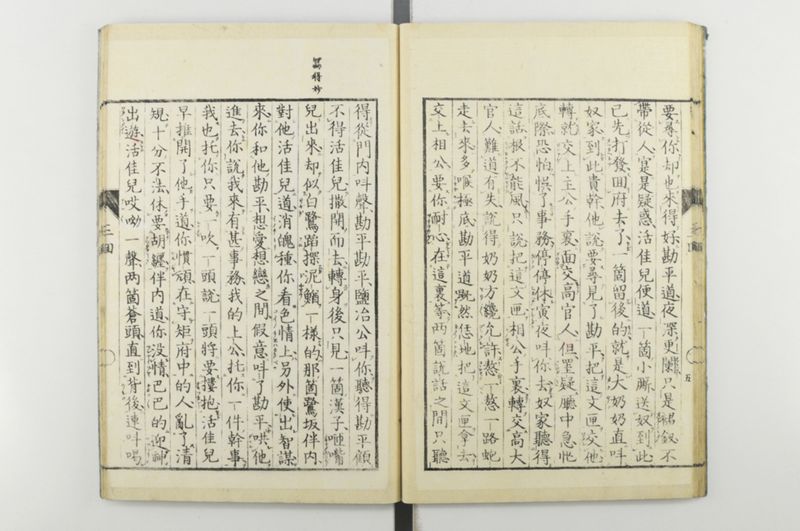 要尋你却也來得好勘平道夜深更闌只是裙釵不
帶從人寔是疑惑活佳兒便道一箇小厮送奴到此
已先打發回府去了一箇留後的就是大奶奶直呌
奴家到此貴幹他說要尋見了勘平把這文匣交他
轉就交上主公手裏面交高官人但罣疑廳中急忙
底際恐怕悞了事務停停休寅夜呌你去奴家聽得
這話極不能風只說把這文匣相公手裏轉交高大
官人難道有失說得奶奶方纔允許熬一熬一路蛇
走去來多喉極底勘平道既然恁地把這文匣拿去
交上相公要你耐心在這裏等兩箇說話之間只聽
得從門内呌聲勘平勘平鹽冶公呌你聽得勘平顧
不得活佳兒撒開而去轉身後只見一箇漢子咂嘴
兒出來却似白鷺蹈探泥鰌一樣的那箇鷺坂伴内
對他活佳兒道消魄種你看色情上另外使出智謀
來你和他勘平想愛想戀之間假意呌了勘平哄他
進去你說我來有甚事務我的上公托你一件幹事
我也托你只要一吹一頭說一頭將要摟抱活佳兒
早推開了他手道你慣頑在守矩府中的人亂了清
規十分不法休要胡纒伴内道你没情巴巴的迎
出遊活佳兒哎呦一聲兩箇蒼頭直到背後連呌喝
寫得妙
三
五